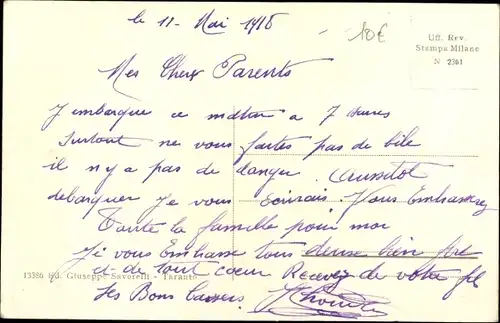 le 11 - Mai 1918
10€
Uff. Rev.
Stampa Milano
N 2361
Mes Cher Parents
J'embarque ce matin a 7 heures
Surtout ne vous faites pas de bile
il n'y a pas de danger. Aussitot
debarquer Je vous ecrirais. Vous Embrasserez
Toute la famille pour moi
Je vous Embrasse tous deux bien fort
et de tout coeur Recevez de votre fils
Les Bons baisers
13386 Ed. Giuseppe Savorelli - Taranto